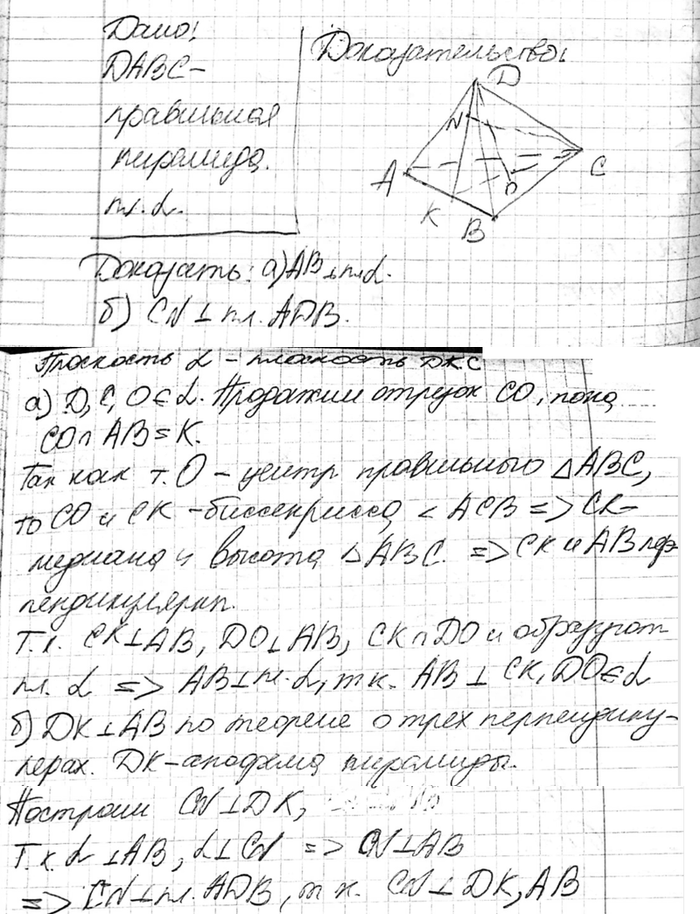 Дано:
DABC –
правильная
пирамида.
пл. α.
Доказательство:
D
N
A
C
O
K
B
Доказать: а) AB ⊥ пл. α.
б) CN ⊥ пл. ADB.
Плоскость α – плоскость DKC
а) D, C, O ∈ α. Продолжим отрезок CO, пока
CO ∩ AB = K.
Так как т. O – центр правильного △ABC,
то CO и CK – биссектрисса ∠ACB => CK –
медиана и высота △ABC. => CK и AB пер-
пендикулярны.
Т.к. CK ⊥ AB, DO ⊥ AB, CK ∩ DO и образуют
пл. α => AB ⊥ пл. α, т.к. AB ⊥ CK, DO ∈ α
б) DK ⊥ AB по теореме о трех перпендику-
лярах. DK – апофема пирамиды.
Построим CN ⊥ DK,
Т.к. α ⊥ AB, α ⊥ CN => CN ⊥ AB
=> CN ⊥ пл. ADB, т.к. CN ⊥ DK, AB